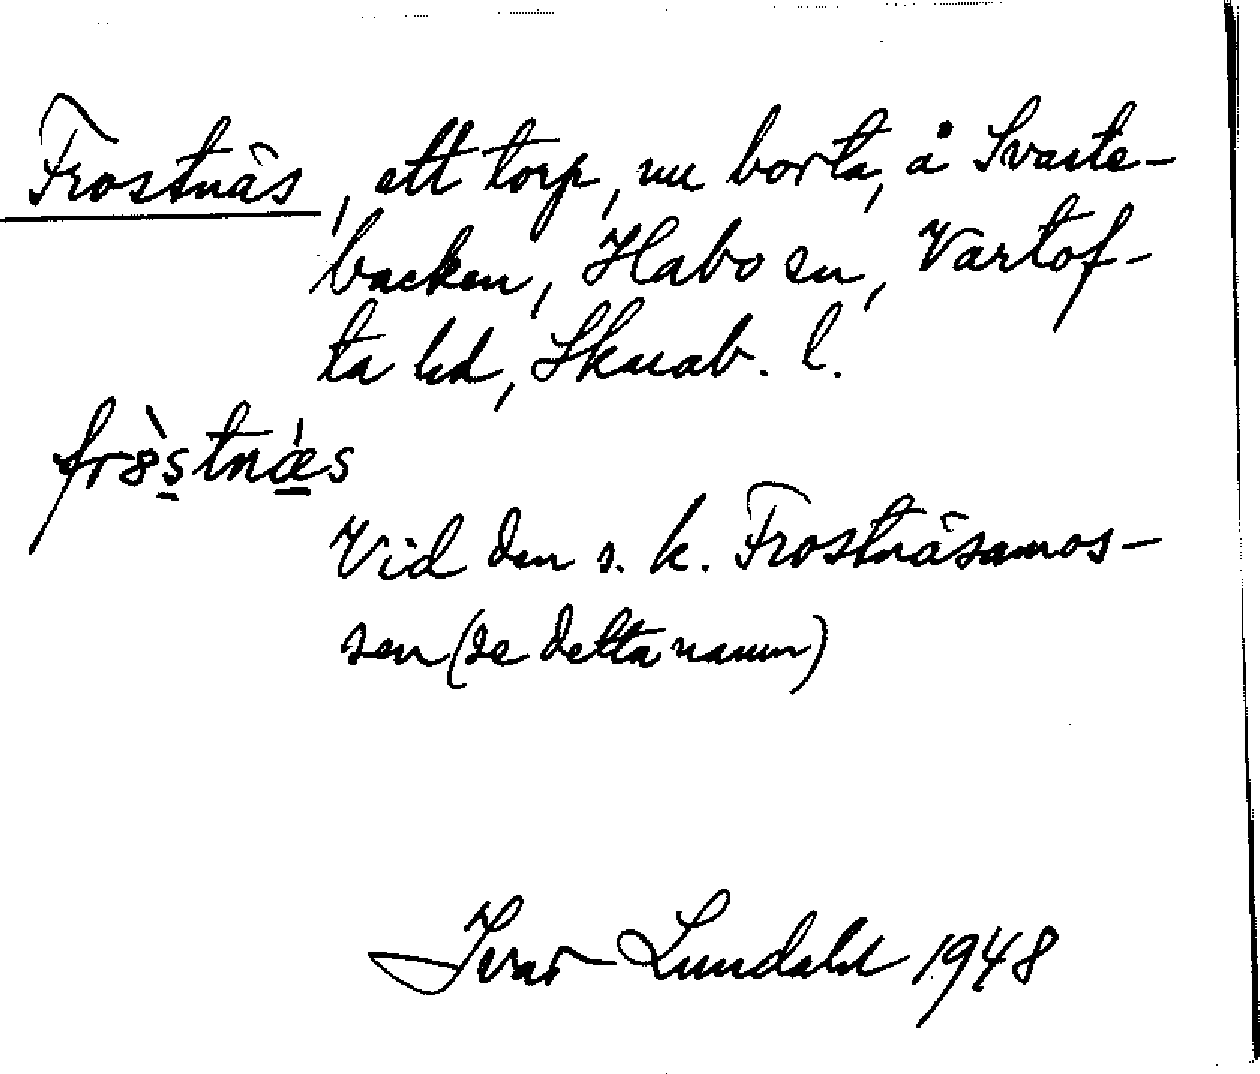 Frostnäs, ett torp, nu borta, å Svarte-
backen, Habo sn, Vartof-
ta hd, Skarab. l.
fr8̀s̱tnǽ̱s
Vid den s. k. Frostnäsamos-
sen (se detta namn)
Ivar Lundahl 1948